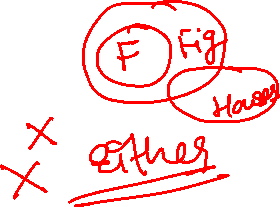 F Fig
Houses
Either